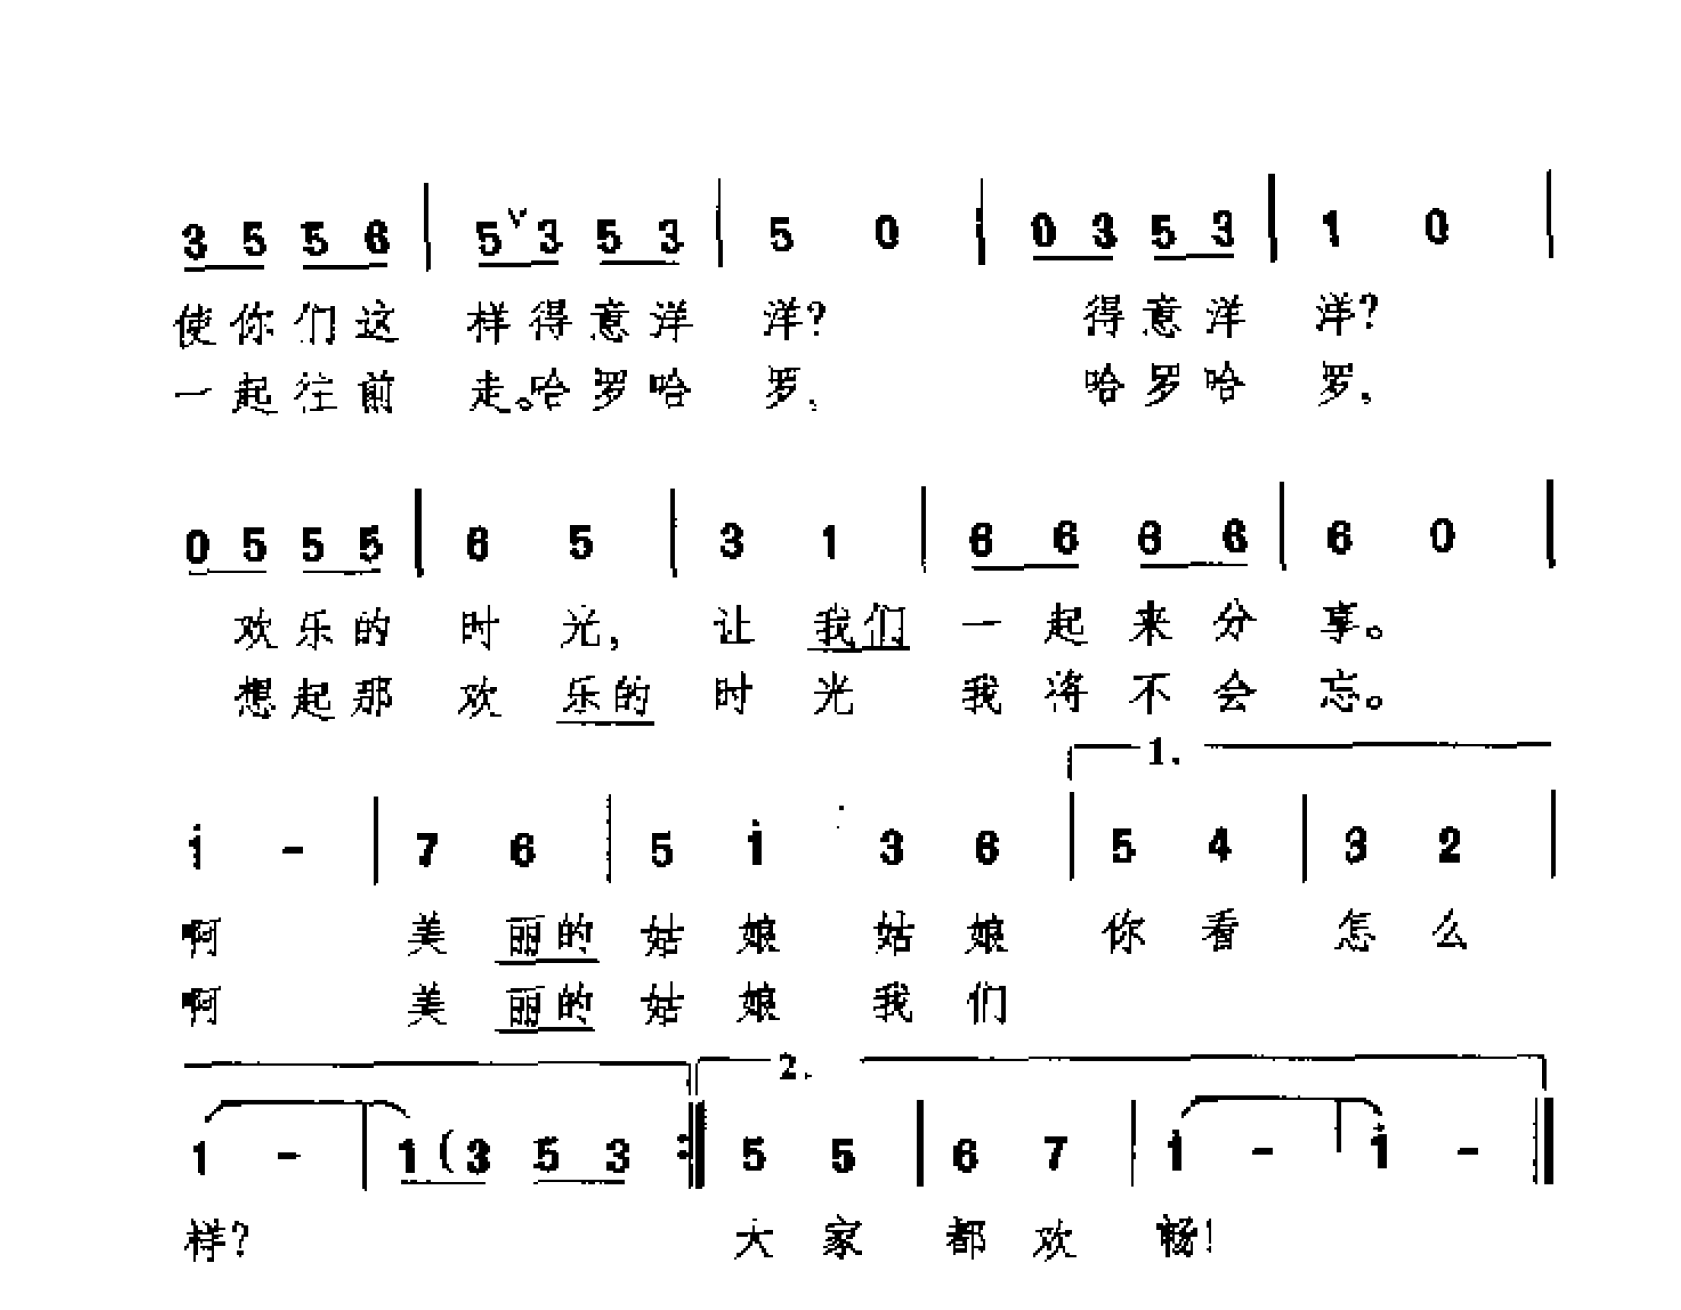 3 5 5 6 | 5 ∨ 3 5 3 | 5 0 | 0 3 5 3 | 1 0 |
使你们这 样得意洋 洋? 得意洋 洋?
一起往前 走。哈罗哈 罗, 哈罗哈 罗,
0 5 5 5 | 6 5 | 3 1 | 6 6 6 6 | 6 0 |
欢乐的 时 光, 让 我们 一起来分 享。
想起那 欢 乐的 时 光 我将不会 忘。
1.
1̇ - | 7 6 | 5 1̇ 3 6 | 5 4 | 3 2 |
啊 美 丽的 姑 娘 姑 娘 你 看 怎 么
啊 美 丽的 姑 娘 我 们
2.
1 - | 1 (3 5 3 :‖ 5 5 | 6 7 | 1̇ - | 1̇ - ‖
样? 大 家 都 欢 畅!